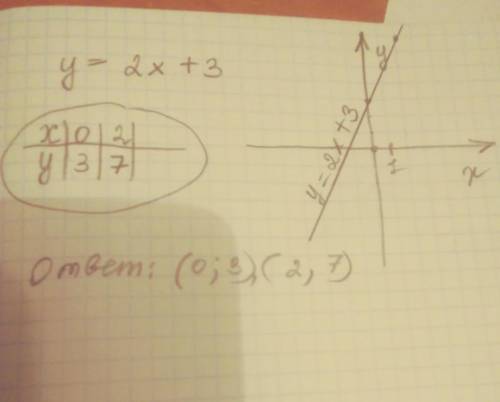 y = 2x + 3
x | 0 | 2 |
y | 3 | 7 |
y
y = 2x + 3
1
x
Ответ: (0; 3), (2, 7)